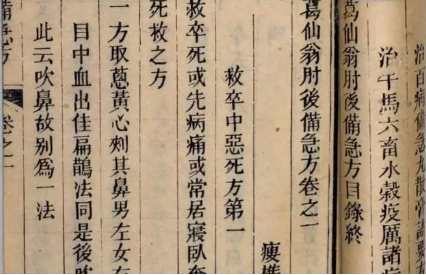 治百病備急丸散膏諸要方
治牛馬六畜水穀疫厲諸病
葛仙翁肘後備急方目錄終
葛仙翁肘後備急方卷之一
救卒中惡死方第一
救卒死或先病痛或常居寢臥奄
死救之方
一方取葱黃心刾其鼻男左女右
目中血出佳扁鵲法同是後
此云吹鼻故别爲一法
備急方
卷之一